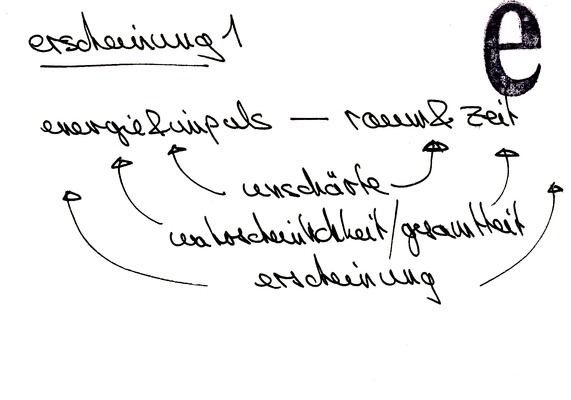 e
erscheinung 1
energie&impuls — raum& zeit
unschärfe
wahrscheinlichkeit/gesamtheit
erscheinung